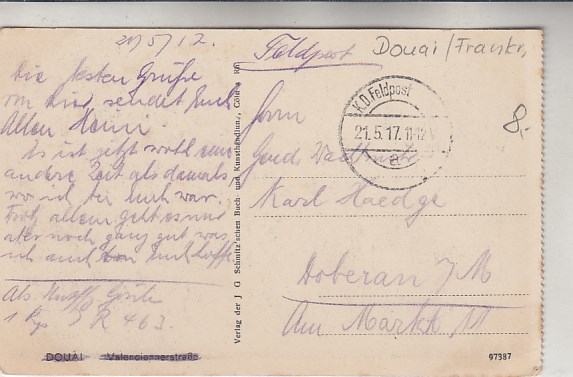 21/5/17.
Die besten Grüße
von hier, sendet Euch
Allen Heini.
Es ist jetzt wohl eine
andere Zeit als damals
wo ich bei Euch war.
Trotz allem geht es mir
aber noch ganz gut was
ich auch von Euch hoffe
Als
1 Kp. I R 463.
DOUAI Valenciennerstraße
Verlag der J G Schmitz'schen Buch- und Kunsthandlung, Cöln
Feldpost
Douai / Frankr.
K.D. Feldpost
21.5.17. 11-12 V
a
8.-
Herrn
Karl Haedge
Doberan i/M
Am Markt
97387